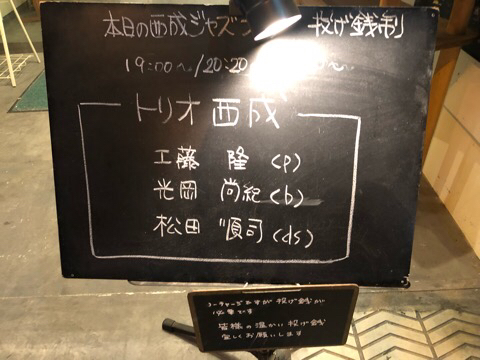 本日の西成ジャズ 投げ銭制
19:00〜/20:20
トリオ西成
工藤 隆 (p)
光岡 尚紀 (b)
松田 順司 (ds)
ノーチャージですが投げ銭が
必要です
皆様の温かい投げ銭
宜しくお願いします